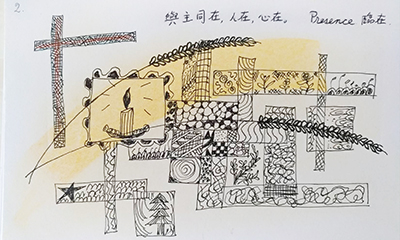 2.
與主同在,人在,心在。 Presence 臨在.